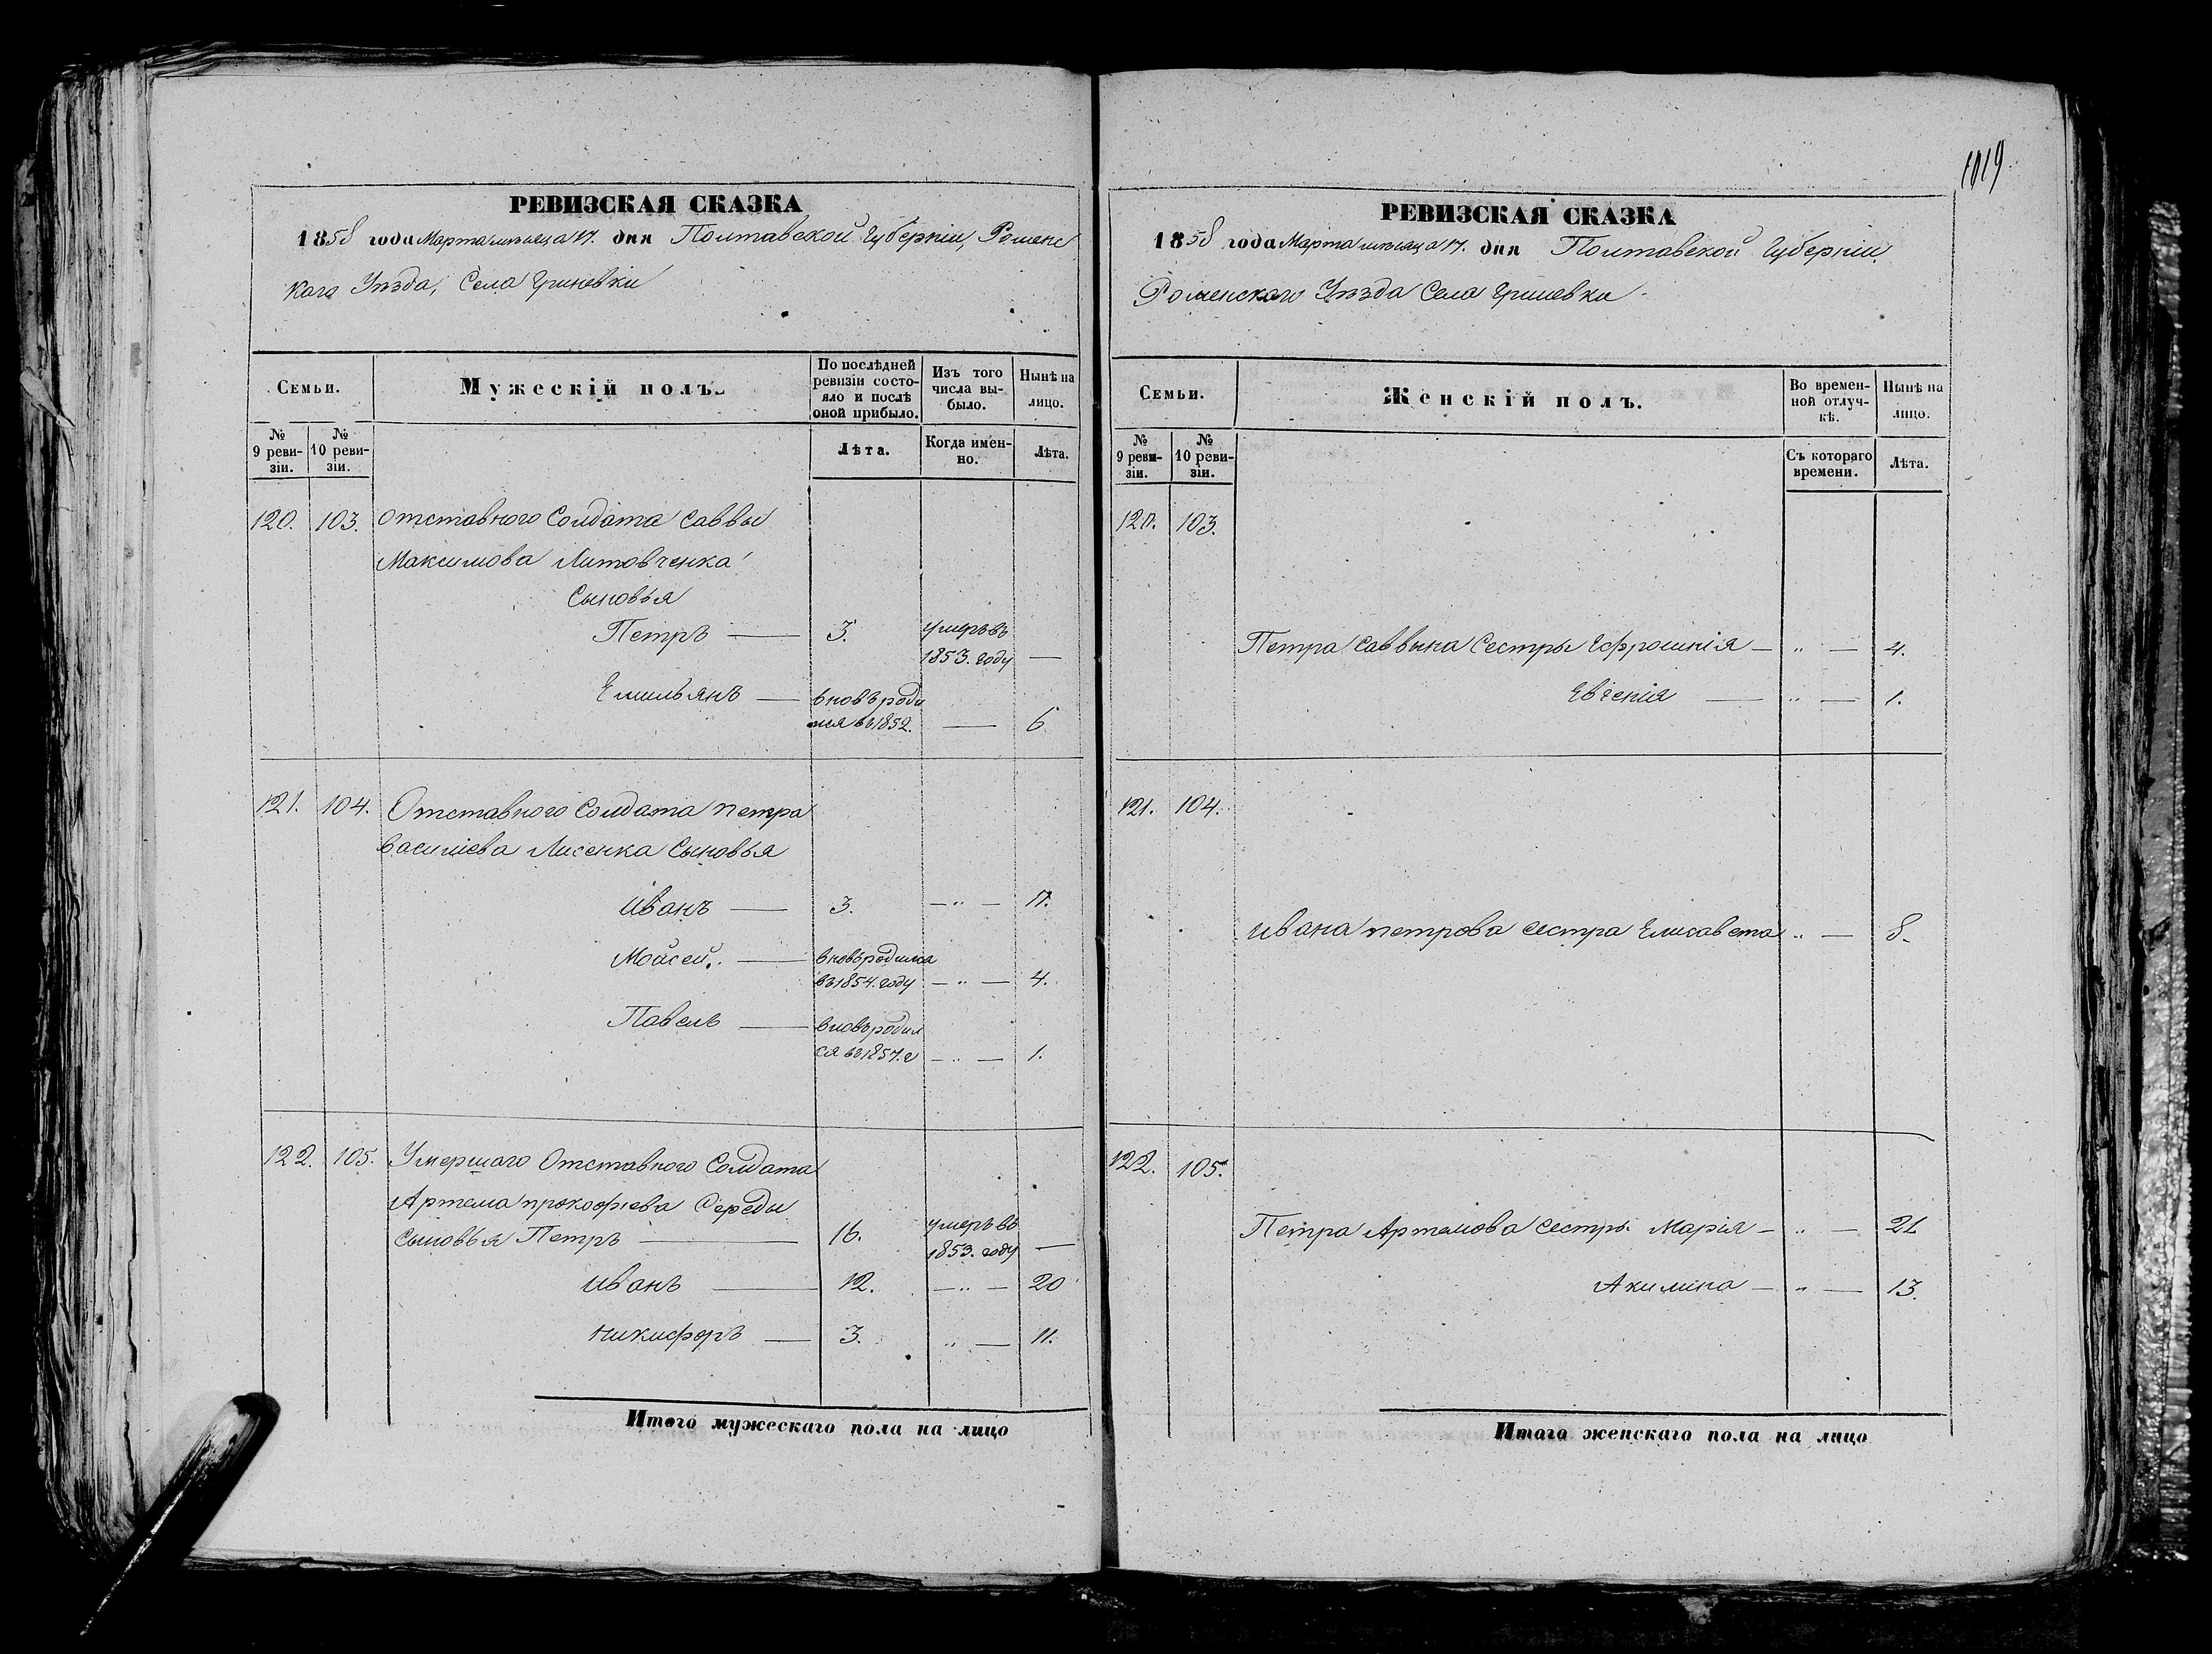 1019
РЕВИЗСКАЯ СКАЗКА
1858 года Марта мѣсяца 17. дня Полтавской Губерніи, Роменс
каго Уѣзда, Села Гриневки
Семьи.
Мужескій полъ.
По послѣдней ревизіи состояло и послѣ оной прибыло.
Изъ того числа выбыло.
Нынѣ на лицо.
№ 9 ревизіи.
№ 10 ревизіи.
Лѣта.
Когда именно.
Лѣта.
120. 103. Отставного Солдата Саввы
Максимова Литовченка
Сыновья
Петръ — 3. умеръ въ
1853. году —
Емильянъ — вновь роди
лся въ 1852. — 6
121. 104. Отставного Солдата Петра
Василіева Лисенка Сыновья
Иванъ — 3. — „ — 11.
Мойсей. — вновь родился
въ 1854. году — „ — 4.
Павелъ — вновь родил
ся въ 1857. г — „ — 1.
122. 105. Умершаго Отставного Солдата
Артема Прокофіева Середы
Сыновья Петръ — 16. умеръ въ
1853. году —
Иванъ — 12. — „ — 20
Никифоръ — 3. „ — 11.
Итого мужескаго пола на лицо
РЕВИЗСКАЯ СКАЗКА
1858 года Марта мѣсяца 17. дня Полтавской Губерніи
Роменскаго Уѣзда Села Гриневки
Семьи.
Женскій полъ.
Во временной отлучкѣ.
Нынѣ на лицо.
№ 9 ревизіи.
№ 10 ревизіи.
Съ котораго времени.
Лѣта.
120. 103.
Петра Саввына Сестры Ефросинія — „ — 4.
Евгенія — „ — 1.
121. 104.
Ивана Петрова сестра Елисавета „ — 8.
122. 105.
Петра Артемова Сестры Марія — „ — 21
Акилина — „ — 13.
Итого женскаго пола на лицо